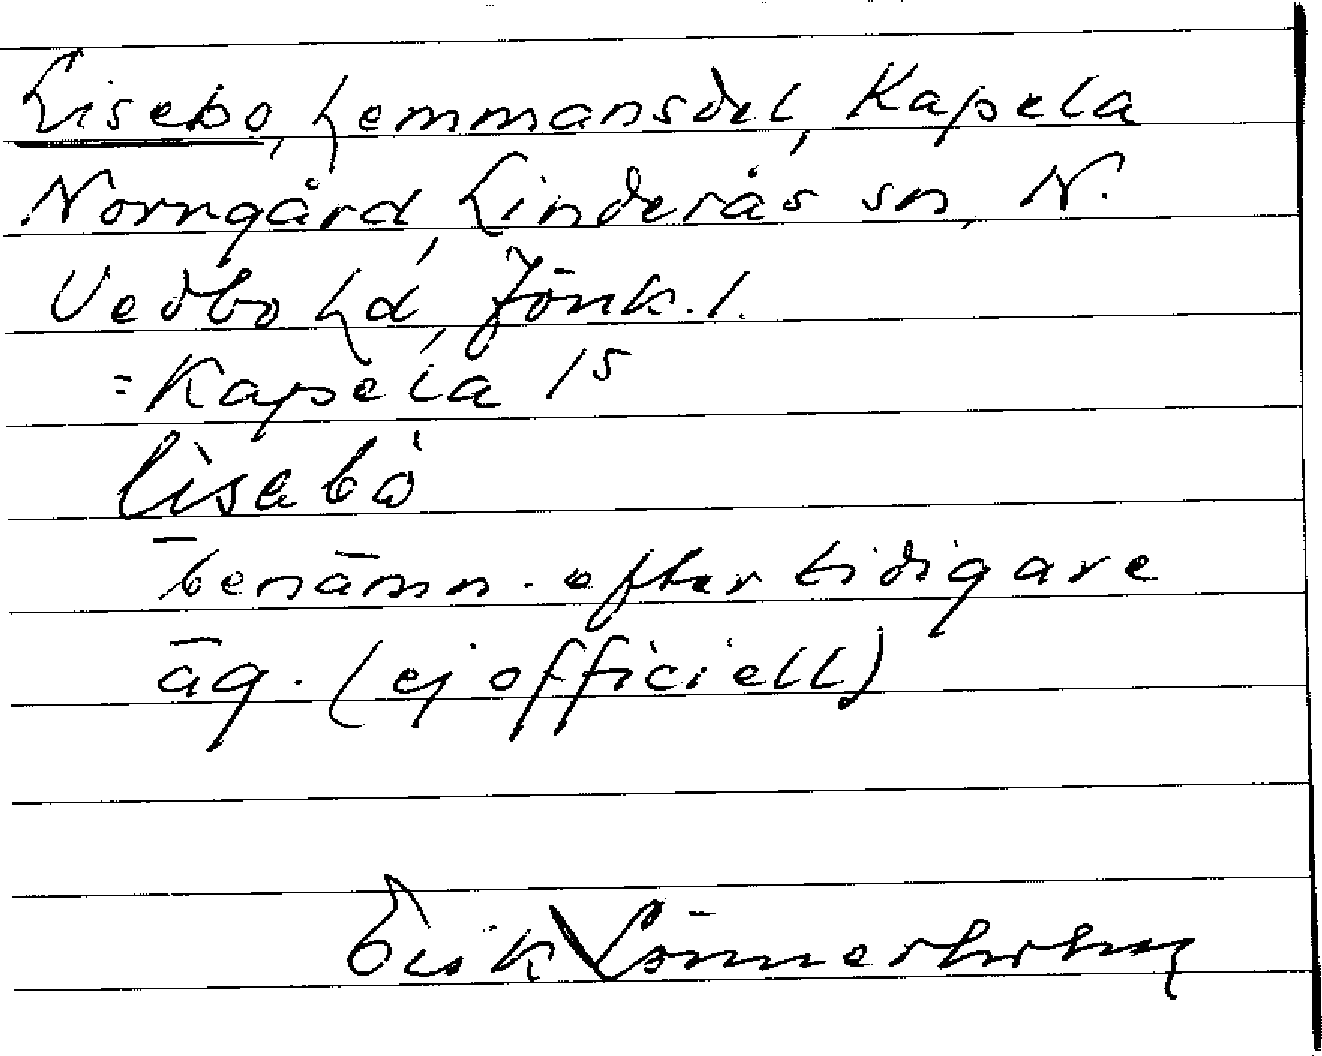 Lisebo, hemmansdel, Kapela
Norrgård, Linderås sn, N.
Vedbo hd, Jönk. l.
= Kapela 1⁵
lìsebò
benämn. efter tidigare
äg. (ej officiell)
Erik Lönnerholm